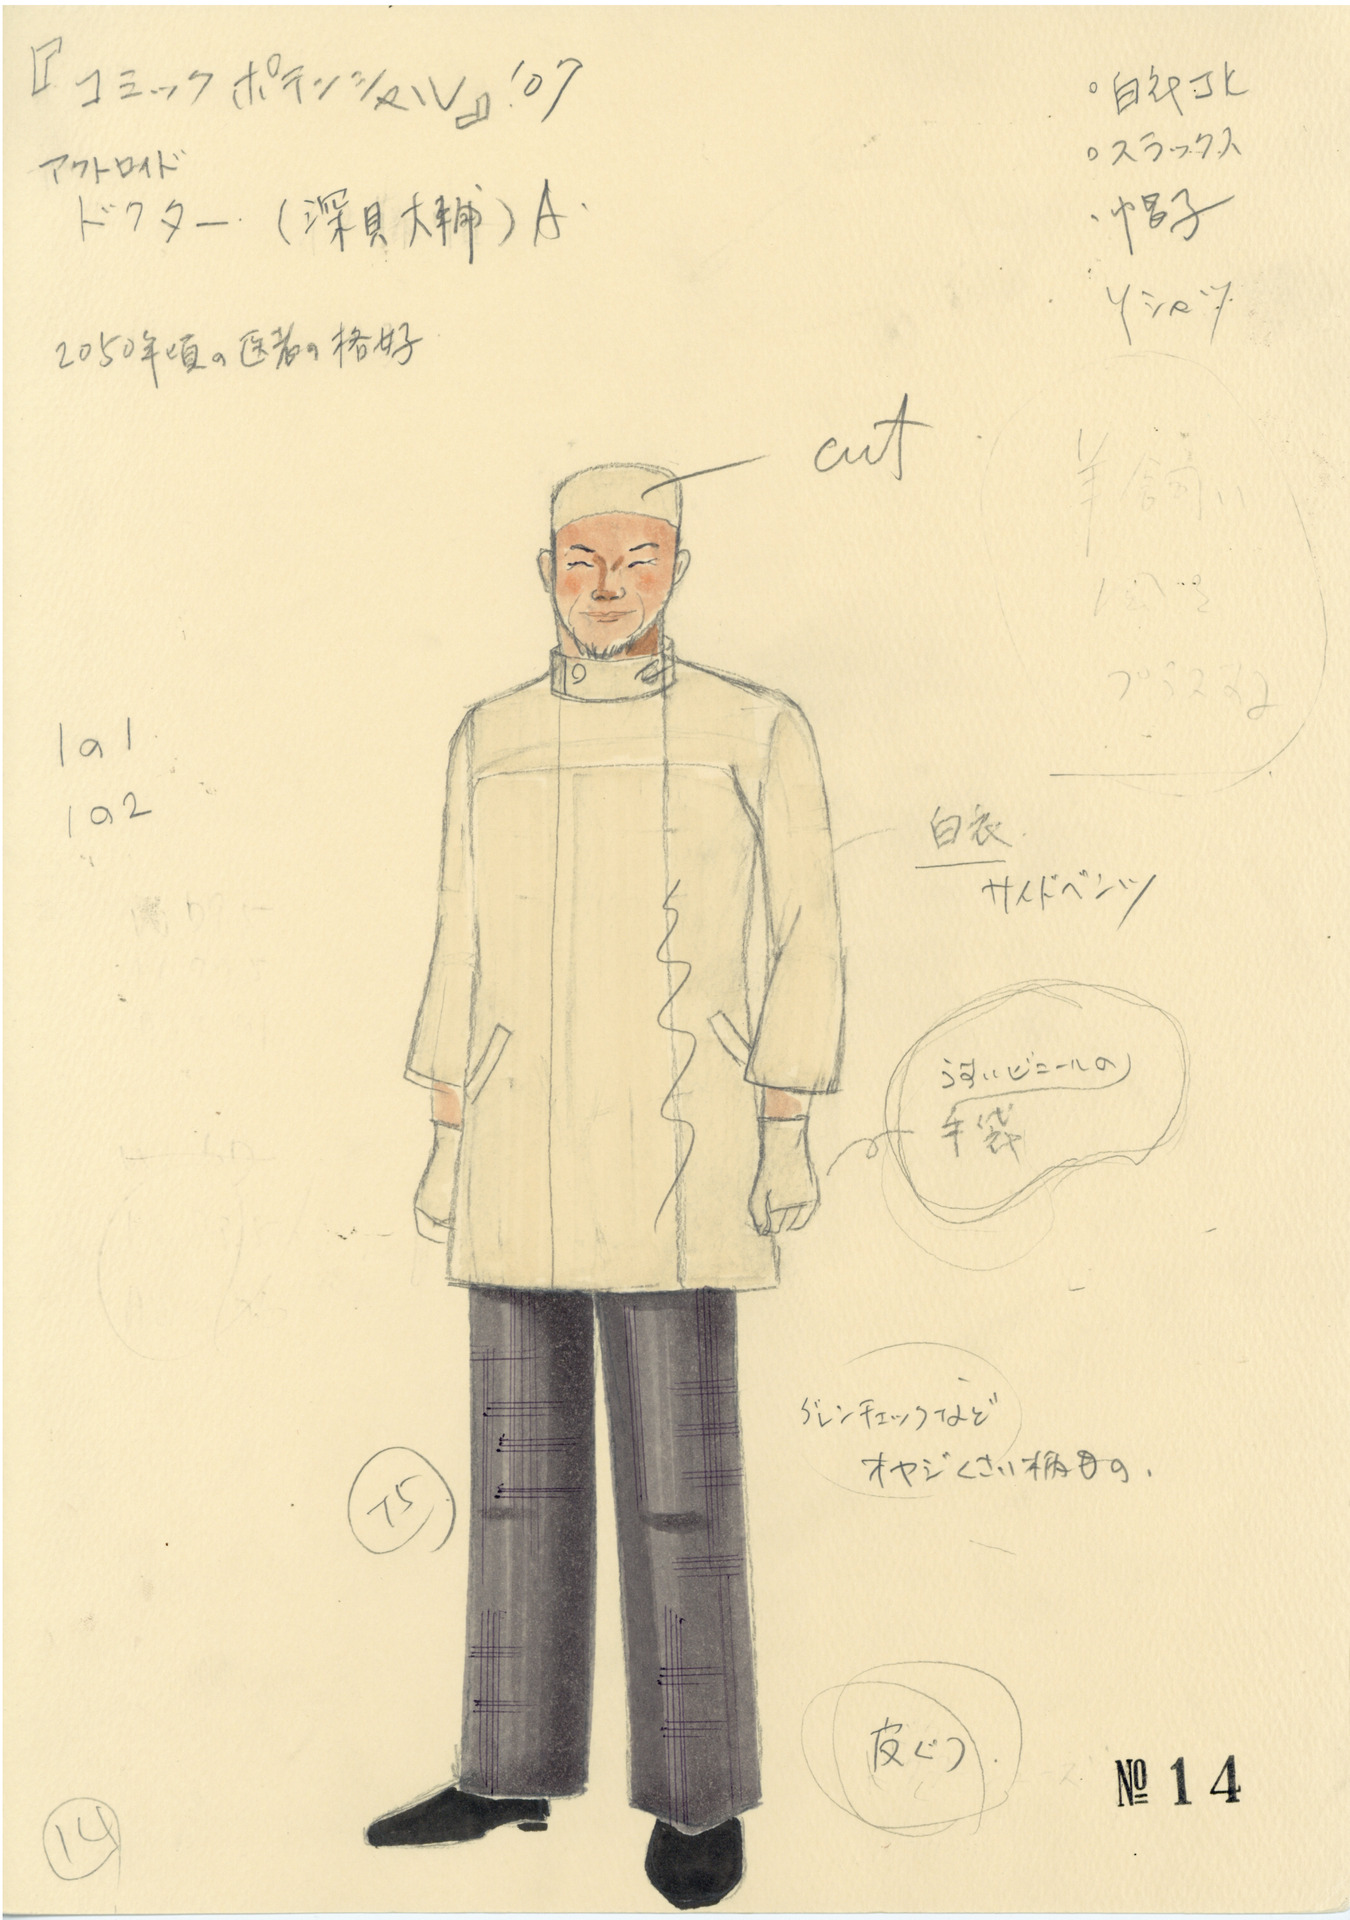 『コミックポテンシャル』'07
アクトロイド
ドクター（深貝大輔）A
2050年頃の医者の格好
スラックス
帽子
Yシャツ
cut
羊飼い
プラスする
1a1
1a2
白衣
サイドベンツ
うすいビニールの
手袋
グレンチェックなど
オヤジくさい柄もの。
75
皮ぐつ
№ 14
14